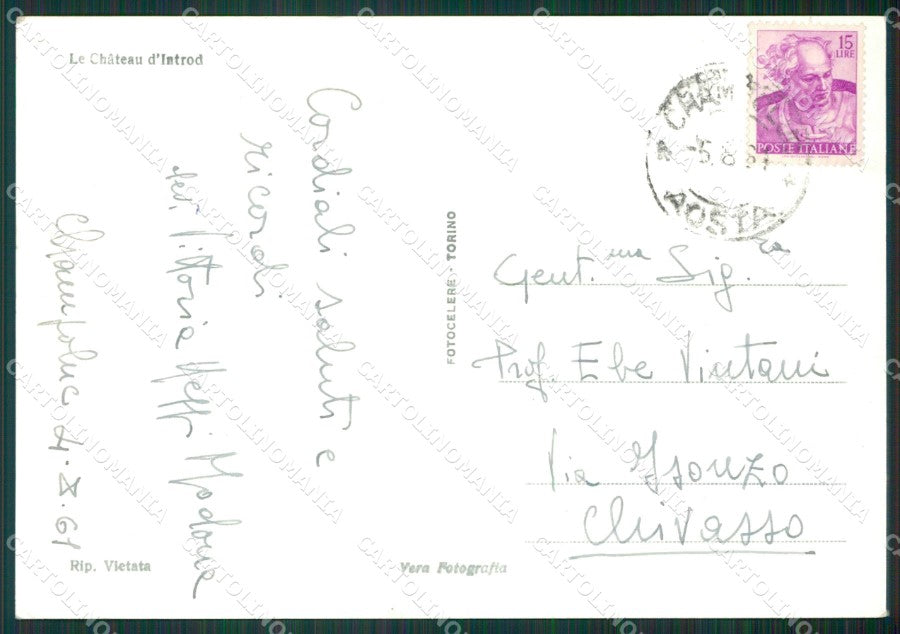 Le Château d'Introd
15
LIRE
POSTE ITALIANE
-5.8.61
AOSTA
Cordiali saluti e
ricordi
Vittoria
Champoluc 4.X.61
FOTOCELERE - TORINO
Gent.ma Sig.ra
Prof. Ebe Viutani
Via Isonzo
Chivasso
Rip. Vietata
Vera Fotografia
CARTOLINOMANIA